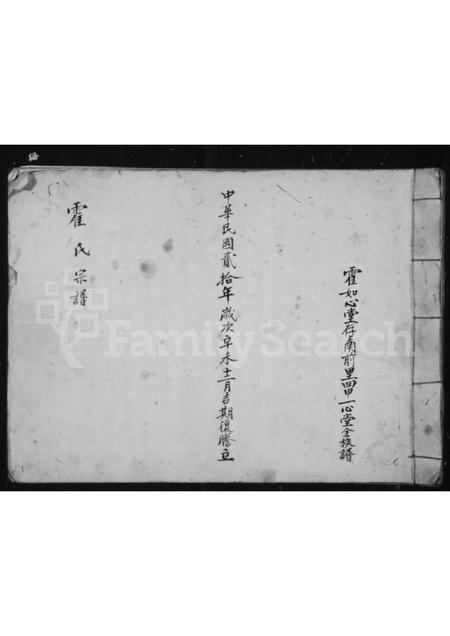 霍如心堂存南前里四甲一心堂仝族譜
中華民國貳拾年歲次辛未十一月吉期復謄立
霍氏宗譜
FamilySearch